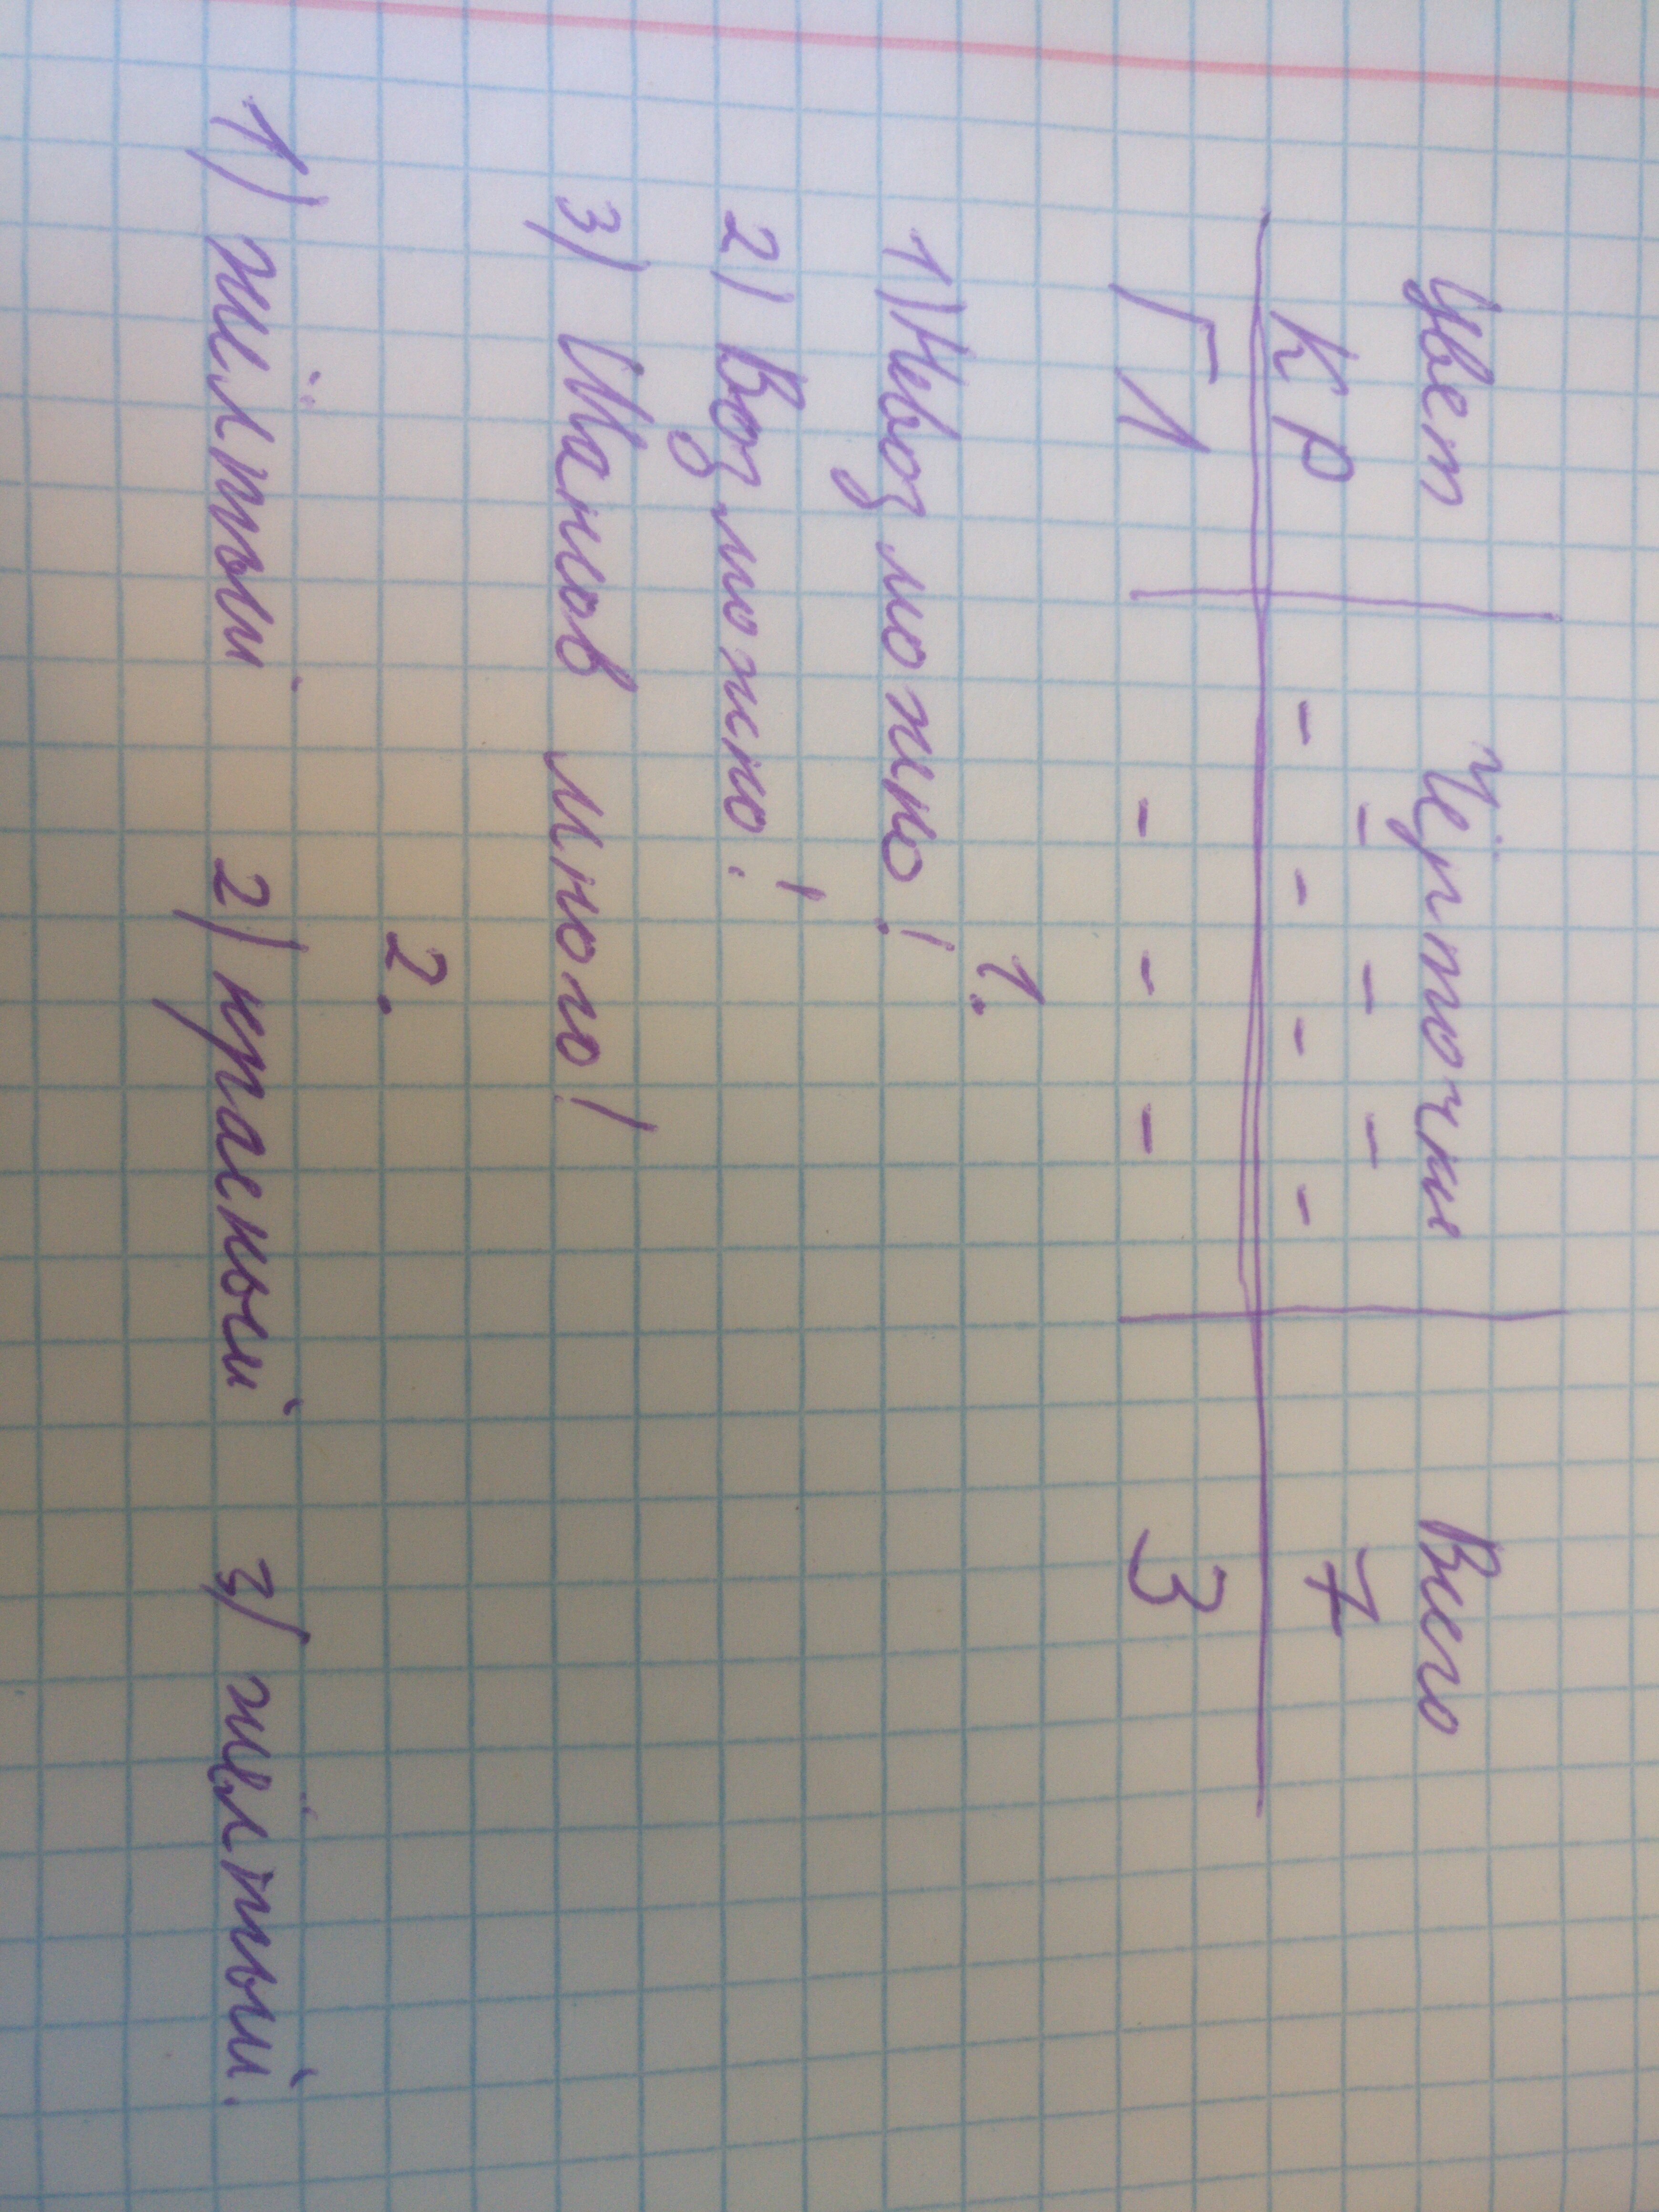 Цвет Чёрточки Всего
Кр - - - - - - - 7
Гл - - - 3
1.
1) Невозможно!
2) Возможно!
3) Шансов много!
2.
1) жёлтый 2) красный 3) жёлтый.